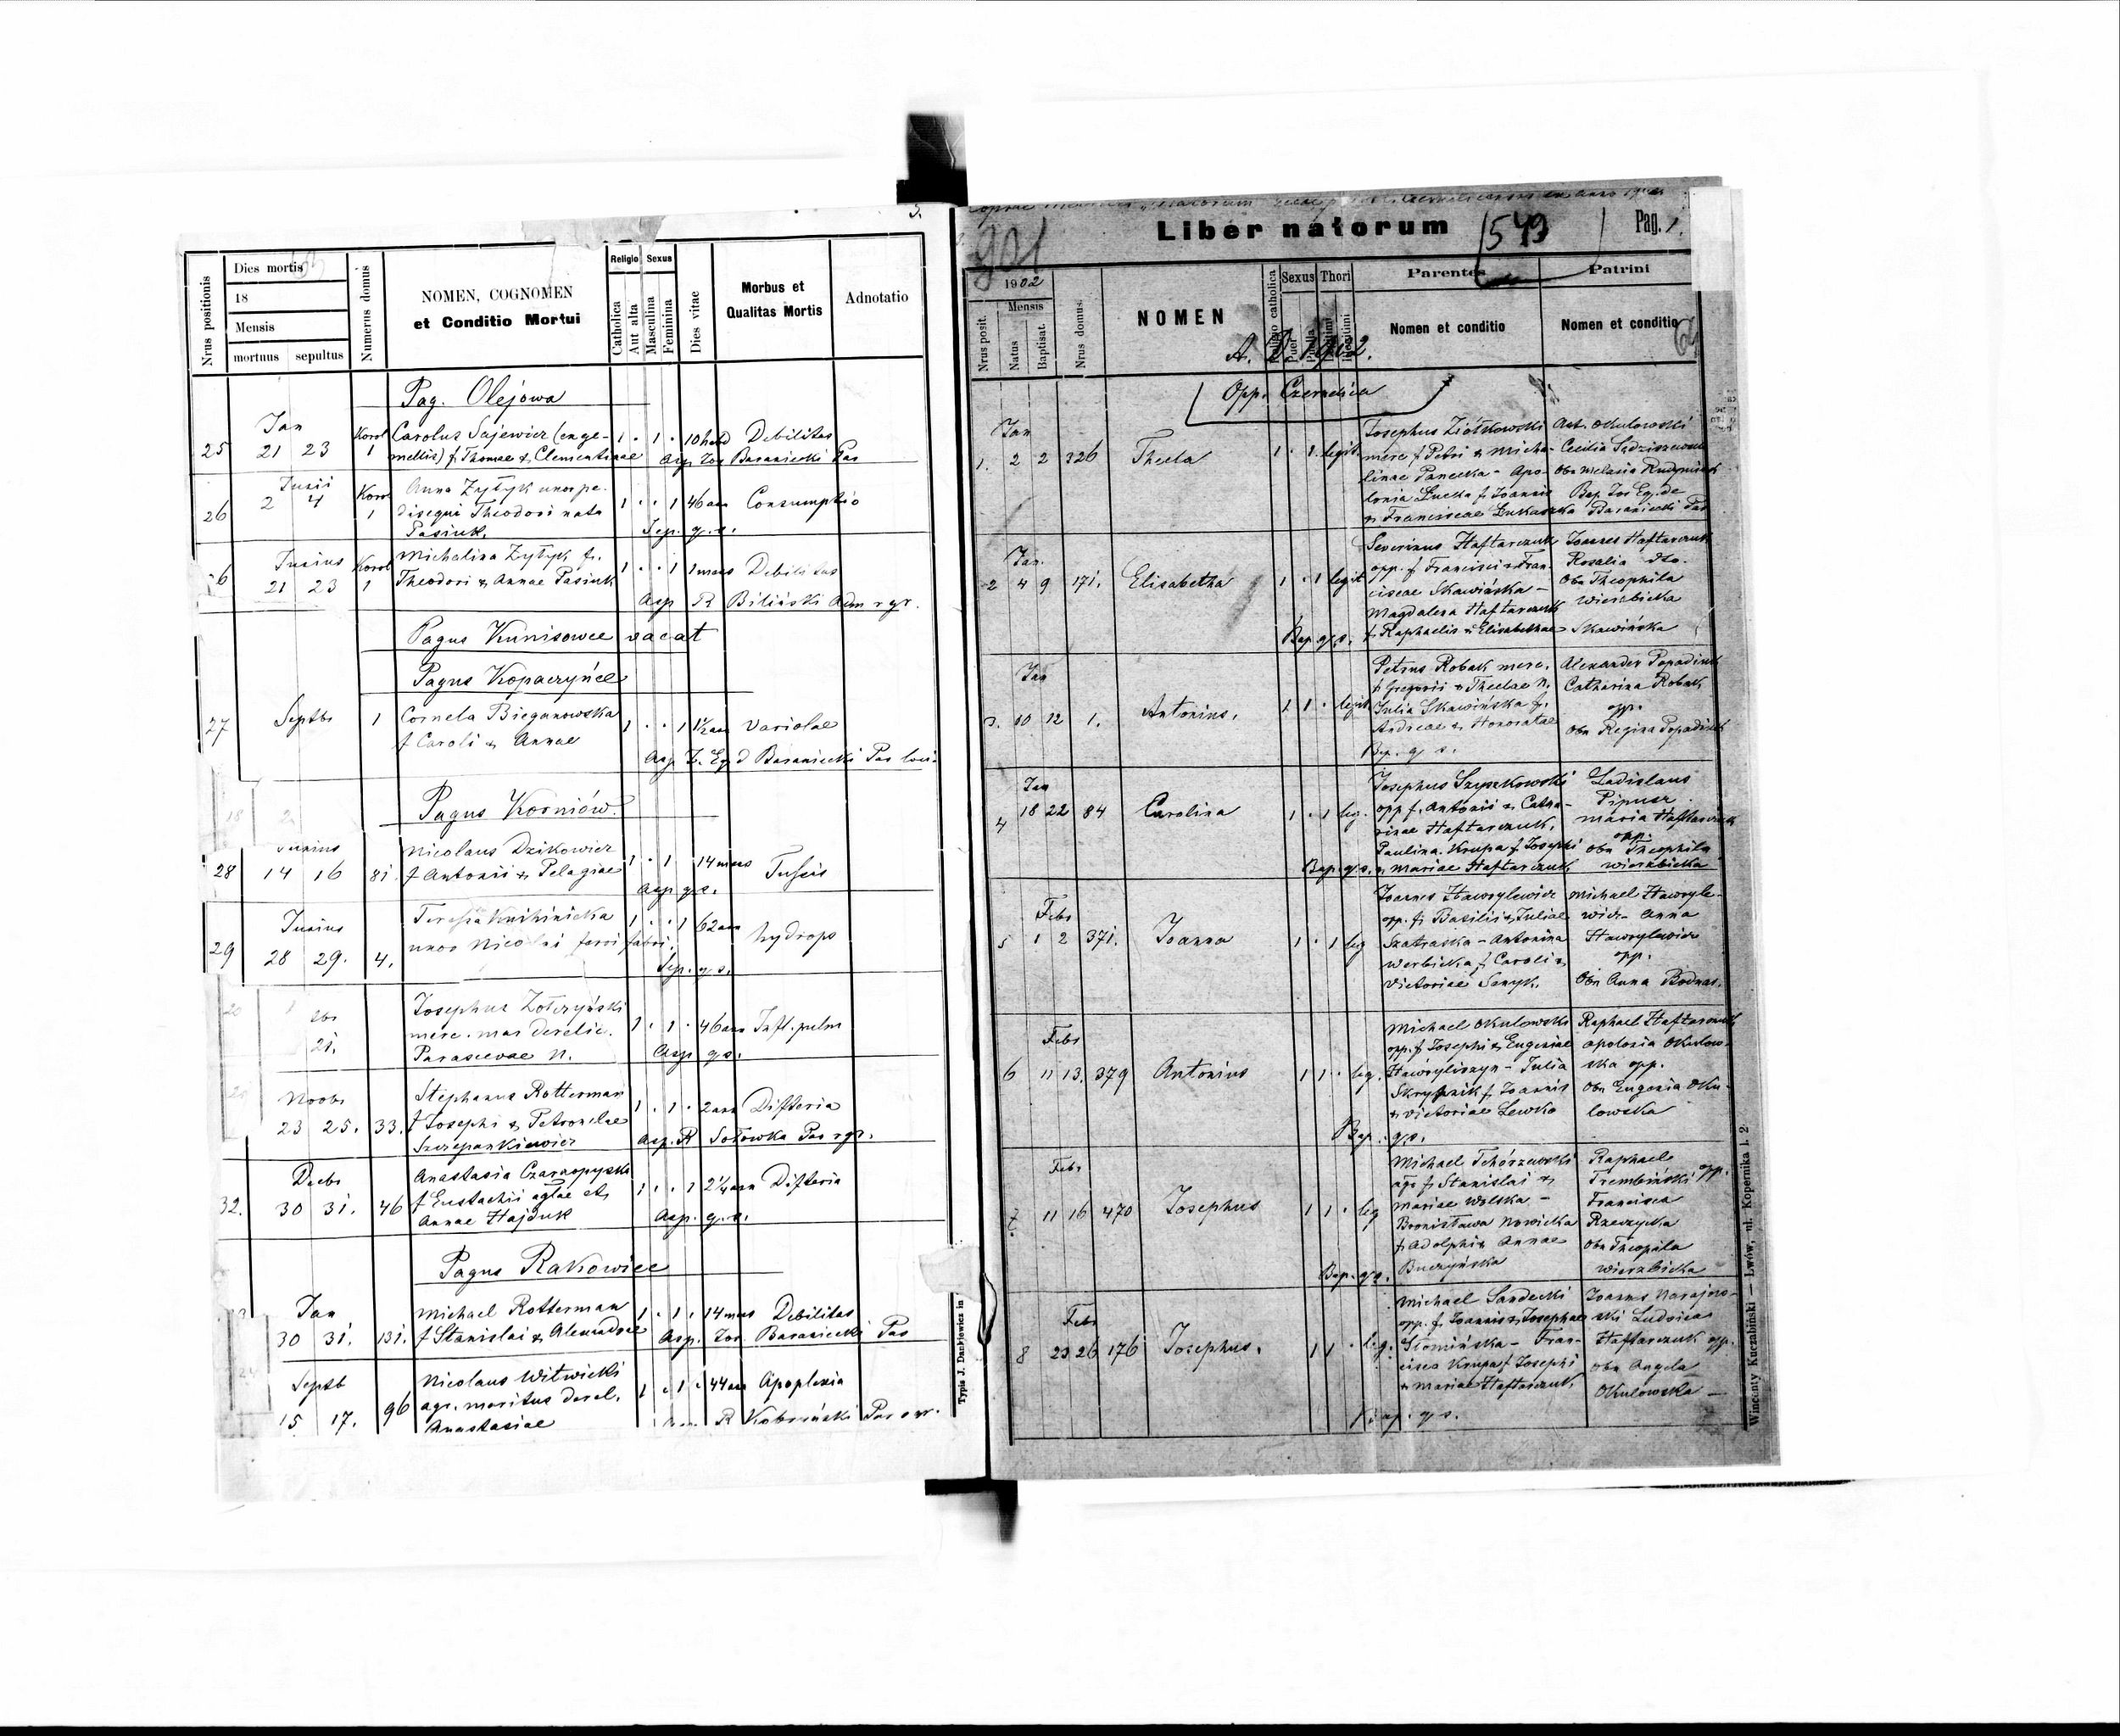 5.
Nrus positionis
Dies mortis
18
Mensis
mortuus sepultus
Numerus domus
NOMEN, COGNOMEN
et Conditio Mortui
Religio Sexus
Catholica
Aut alta
Masculina
Feminina
Dies vitae
Morbus et
Qualitas Mortis
Adnotatio
Pag. Olejowa
25 Jan 21 23 Korol 1
Carolus Sajewicz (e ge-
mellis) f. Thomae & Clementinae
1 . 1 . 10 Debilitas
Asp Jos Baraniecki Par
26 Junii 2 4 Korol 1
Anna Zytyk uxor pe-
disequi Theodori nata
Pasiuk.
1 . . 1 46 ann Consumptio
Sep. q. s.
26 Junius 21 23 Korol 1
Michalina Zytyk f.
Theodori & Annae Pasiuk
1 . . 1 1 mens Debilitas
Asp R Biliński Adm r gr.
Pagus Kunisowce vacat
Pagus Kopaczyńce
27 Septbr 1
Cornela Bieganowska
f Caroli & Annae
1 . . 1 1½ ann Variolae
Asp J. Eq d Baraniecki Par loci
Pagus Korniów
28 Junius 14 16 81.
Nicolaus Dzikowicz
f Antonii & Pelagiae
1 . 1 14 mens Tussis
Asp q. s.
29 Junius 28 29. 4.
Teresia Knihinicka
uxor Nicolai ferri fabri.
1 . . 1 62 ann hydrops
Sep. q. s.
21.
Josephus Zołczyński
merc. mar derelic.
Parascevae n.
1 . 1 . 46 ann Infl. pulm
Asp q. s.
Novbr 23 25. 33.
Stephanus Rotterman
f Josephi & Petronelae
Szczepankiewicz
1 . 1 . 2 ann Difteria
Asp. R Sołowka Par rgr.
32. Decbr 30 31. 46
Anastasia Czarnopyska
f Eustachii aglae et
Annae Hajduk
1 . . 1 2¼ ann Difteria
Asp. q. s.
Pagus Rakowiec
Jan 30 31. 131.
Michael Rotterman
f Stanislai & Alexandrae
1 . 1 . 14 mens Debilitas
Asp. Jos. Baraniecki Par
Septb 15 17. 96
Nicolaus Witwicki
agr. maritus derel.
Anastasiae
1 . 1 . 44 ann Apoplexia
R Kobrzński Par
Typis J. Dankiewicz in
901
Liber natorum 549 Pag. 1.
Nrus posit.
1902
Mensis
Natus
Baptisat.
Nrus domus
NOMEN
A. D. 1902.
Religio catholica
Sexus
Puer
Puella
Thori
Legitimi
Illegitimi
Parentes
Nomen et conditio
Patrini
Nomen et conditio
Opp. Czernelica
1. Jan 2 2 326 Thecla 1 . 1 legit
Josephus Ziółkowski
merc f Petri & Micha-
linae Panecka - Apo-
lonia Łucka f Joannis
& Franciscae Łukaszka
Ant. Okulowski
Cecilia Sędziszewska
Obs Melania Rudyńska
Bap. Jos Eq. de
Baraniecki Par
2 Jan. 4 9 171. Elisabetha 1 . 1 legit
Severinus Haftarczuk
opp. f Francisci & Fran-
ciscae Skawińska -
Magdalena Haftarczuk
f Raphaelis & Elisabethae Skawińska
Joannes Haftarczuk
Rosalia dto.
Obs Theophila
Wierzbicka
Bap q. s.
3. Jan 10 12 1. Antonius. 1 1 . legit
Petrus Robak merc.
f Gregorii & Theclae n.
Julia Skawińska f.
Andreae & Honoratae
Bap. q s.
Alexander Popadiuk
Catharina Robak
opp.
Obs Regina Popadiuk
4 Jan 18 22 84 Carolina 1 . 1 leg.
Josephus Szyszkowski
opp f. Antonii & Catha-
rinae Haftarczuk.
Paulina Krupa f Josephi
& Mariae Haftarczuk
Ladislaus
Pipusz
Maria Haftarczuk
opp.
Obs Theophila
Wierzbicka
Bap. q. s.
5 Febr 1 2 371. Joanna 1 . 1 leg
Joannes Hawrylewicz
opp. f Basilii & Juliae
Szatraska - Antonina
Werbicka f Caroli &
Victoriae Senyk.
Michael Hawryle-
wicz - Anna
Hawrylewicz
opp.
Obs Anna Bodnar.
6 Febr 11 13. 379 Antonius 1 1 . leg.
Michael Okulowski
opp. f Josephi & Eugeniae
Hawryliszyn - Julia
Skrypnik f Joannis
& Victoriae Lewko
Raphael Haftarczuk
Apolonia Okulow-
ska opp.
Obs Eugenia Oku-
lowska
Bap. q. s.
7. Febr 11 16 470 Josephus 1 1 . leg
Michael Tchórzewski
agr f Stanislai &
Mariae Wolska -
Bronisława Nowicka
f Adolphi & Annae
Buczyńska
Raphael
Trembiński opp.
Francisca
Rzeczycka
Obs Theophila
Wierzbicka
Bap. q. s.
8 Febr 23 26 176 Josephus. 1 1 . leg.
Michael Sandecki
opp. f Joannis & Josephae
Słomińska - Fran-
cisca Krupa f Josephi
& Mariae Haftarczuk.
Joannes Narajow-
ski Ludovica
Haftarczuk opp.
Obs Angela
Okulowska -
Bap. q. s.
Wincenty Kuczabiński — Lwów, ul. Kopernika l. 2